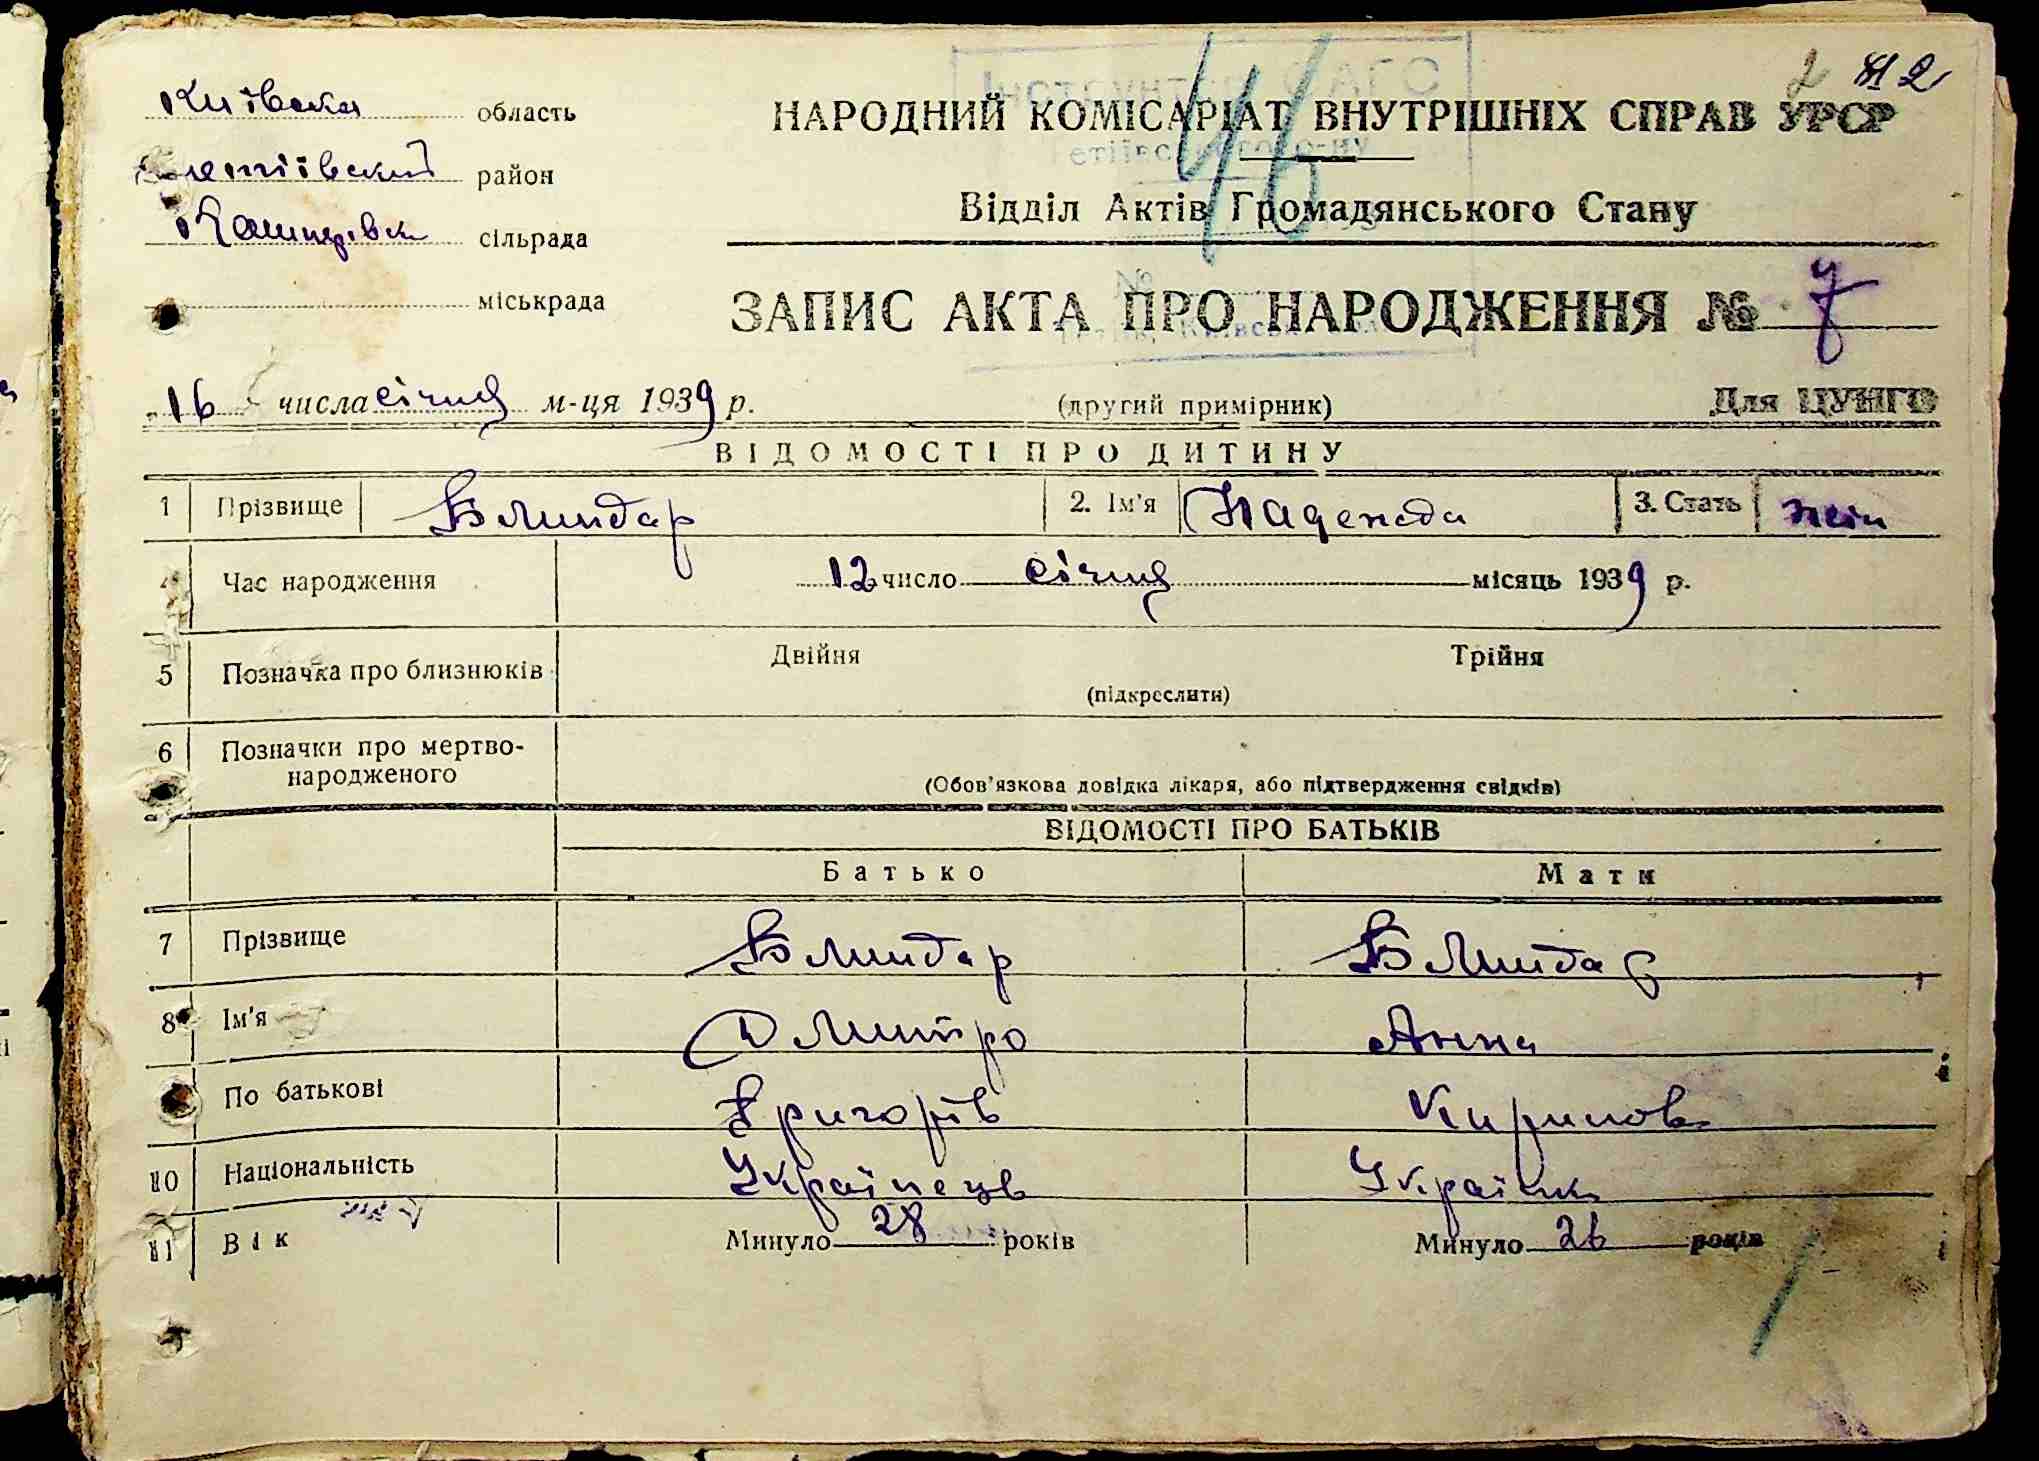 2 42
Київська область
НАРОДНИЙ КОМІСАРІАТ ВНУТРІШНІХ СПРАВ УРСР
46
Тетіївский район
Відділ Актів Громадянського Стану
Кашперівськ сільрада
міськрада
ЗАПИС АКТА ПРО НАРОДЖЕННЯ № 7
„16 числа січня м-ця 1939 р.
(другий примірник)
Для ЦУНГО
ВІДОМОСТІ ПРО ДИТИНУ
1 Прізвище Блиндар 2. Ім'я Надежда 3. Стать жін
4 Час народження 12 число січня місяць 1939 р.
5 Позначка про близнюків Двійня Трійня
(підкреслити)
6 Позначки про мертво-
народженого
(Обов'язкова довідка лікаря, або підтвердження свідків)
ВІДОМОСТІ ПРО БАТЬКІВ
Батько Мати
7 Прізвище Блиндар Блиндар
8 Ім'я Дмитро Анна
По батькові Григорів Кирилов
10 Національність Українець Українк
11 Вік Минуло 28 років Минуло 26 років